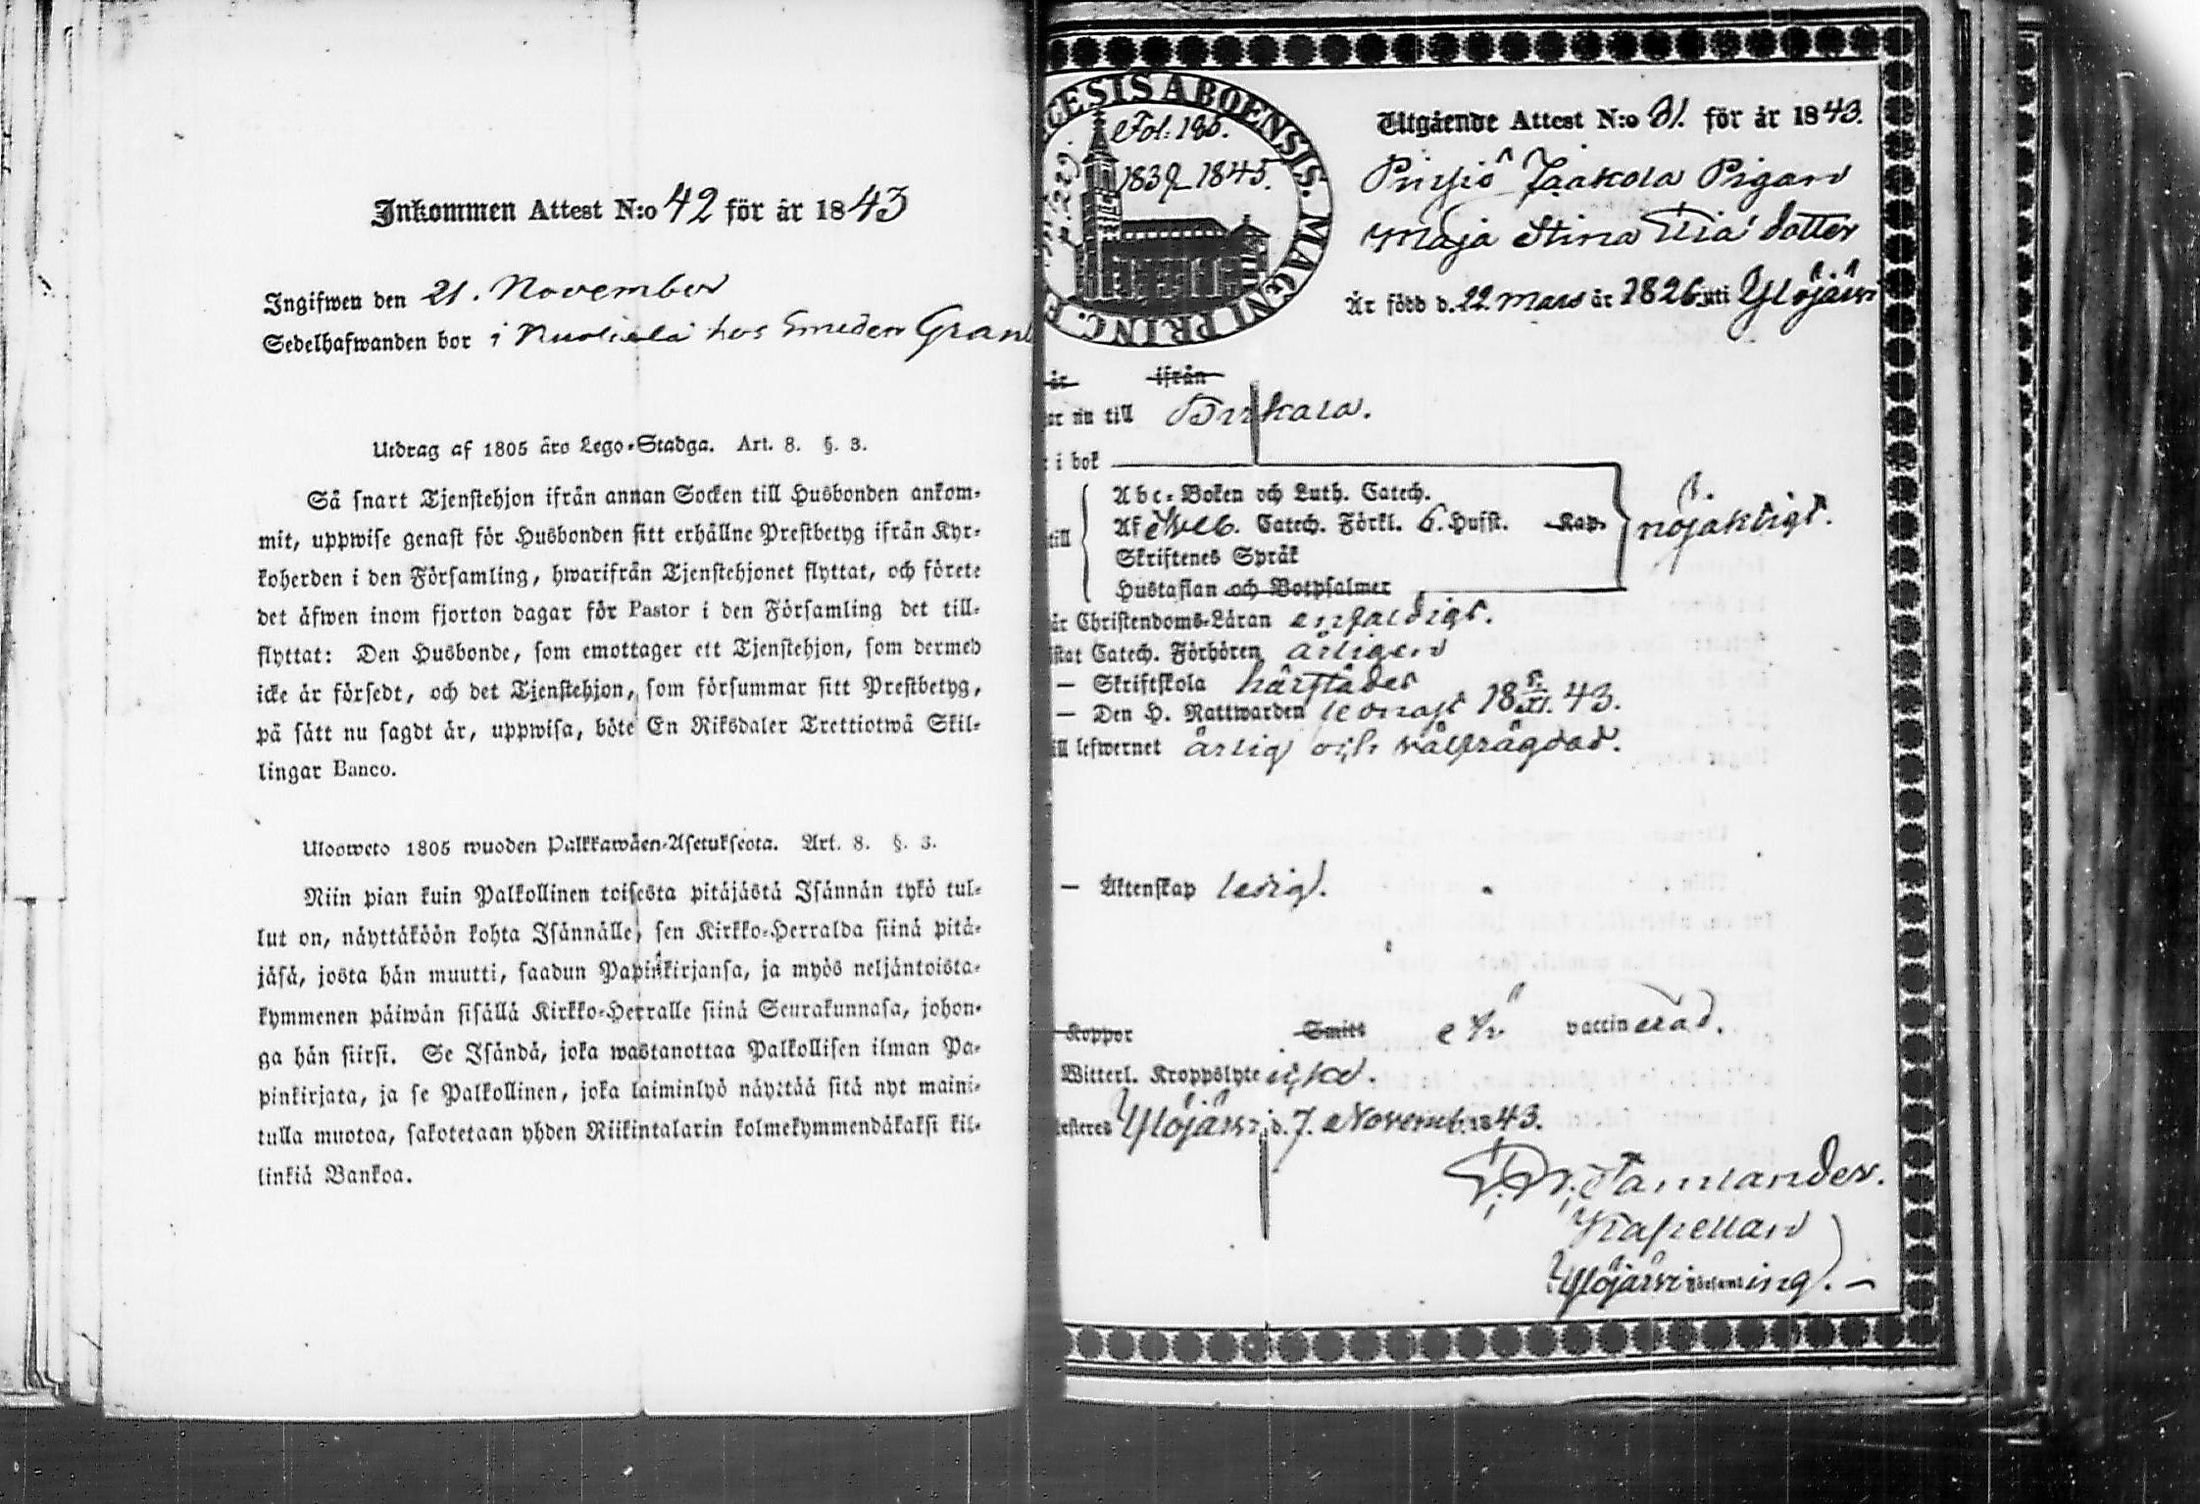 Inkommen Attest N:o 42 för år 1843
Ingifwen den 21. November
Sedelhafwanden bor i Nuoliala hos Smeden Gran
Utdrag af 1805 års Lego-Stadga. Art. 8. §. 3.
Så snart Tjenstehjon ifrån annan Socken till Husbonden ankom-
mit, uppwise genast för Husbonden sitt erhållne Prestbetyg ifrån Kyr-
koherden i den Församling, hwarifrån Tjenstehjonet flyttat, och förete
det åfwen inom fjorton dagar för Pastor i den Församling det till-
flyttat: Den Husbonde, som emottager ett Tjenstehjon, som dermed
icke är försedt, och det Tjenstehjon, som försummar sitt Prestbetyg,
på sått nu sagdt är, uppwisa, böte En Riksdaler Trettiotwå Skil-
lingar Banco.
Ulosweto 1805 wuoden Palkkawåen-Asetuksesta. Art. 8. §. 3.
Niin pian kuin Palkollinen toisesta pitåjåstå Isånnån tykö tul-
lut on, nåyttåköön kohta Isånnålle, sen Kirkko-Herralda siinå pitå-
jåså, josta hån muutti, saadun Papinkirjansa, ja myös neljåntoista-
kymmenen påiwån sisållå Kirkko-Herralle siinå Seurakunnasa, johon-
ga hån siirsi. Se Isåndå, joka wastanottaa Palkollisen ilman Pa-
pinkirjata, ja se Palkollinen, joka laiminlyö nåyttåå sitå nyt maini-
tulla muotoa, sakotetaan yhden Riikintalarin kolmekymmendåkaksi kil-
linkiå Bankoa.
CESIS ABOENSIS. MAGNI PRINC. F
Fol: 185.
1839–1845.
Utgående Attest N:o 81. för år 1843.
Pinsiö Jaakola Pigan
Maja Stina dotter
Är född d. 22 Mars år 1826 uti Ylöjärvi
år ifrån
nu till Birkala.
i bok
till
Abc-Boken och Luth. Catech.
Af Catech. Förkl. 6. Hufst. Kap.
Skriftenes Språk
Hustaflan och Botpsalmer
nöjaktigt.
Christendoms-Låran enfaldigt.
Catech. Förhören årligen
— Skriftskola härstädes
— Den H. Nattwarden senast 18 5/11. 43.
till lefwernet ärlig och välfrägdad.
— Äktenskap ledig.
Koppor Smitt vaccinerad.
Witterl. Kroppslyte icke.
Ylöjärvi, d. 7. Novemb. 1843.
Tamlander.
Kapellan
Ylöjärvi Församling. —